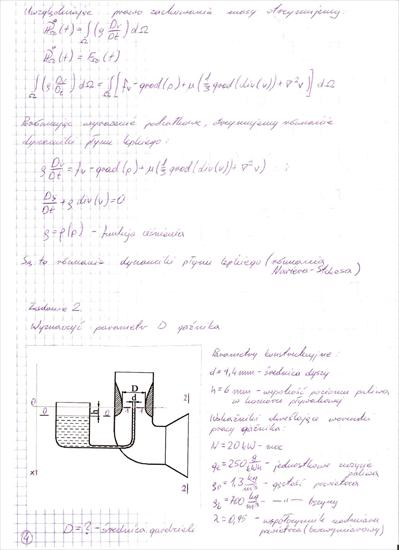 Uwzględniając prawo zachowania masy otrzymujemy:
(t) = ∫Ω (ρ Dv/Dt) dΩ
(t) = (t)
∫Ω (ρ Dv/Dt) dΩ = ∫Ω [fv - grad(p) + μ(1/3 grad(div(v)) + ∇²v)] dΩ
wyrażenie podcałkowe, otrzymujemy równanie
dynamiki płynu lepkiego:
ρ Dv/Dt = fv - grad(p) + μ(1/3 grad(div(v)) + ∇²v) ;
Dρ/Dt + ρ div(v) = 0
ρ = ρ(p) - funkcja ciśnienia
Są to równania dynamiki płynu lepkiego (równania
Naviera-Stokesa)
Zadanie 2.
Wyznaczyć parametr D gaźnika
Parametry konstrukcyjne:
d = 1,4 mm - średnica dyszy
h = 6 mm - wysokość poziomu paliwa
w komorze pływakowej
Wskaźniki określające warunki
pracy gaźnika:
N = 20 kW - moc
ge = 250 g/kWh - jednostkowe zużycie
paliwa
ρp = 1,3 kg/m³ - gęstość powietrza
ρb = 700 kg/m³ - —〃— benzyny
λ = 0,95 - współczynnik nadmiaru
powietrza (bezwymiarowy)
D
d
h
0
2
2
x1
D = ? - średnica gardzieli
4